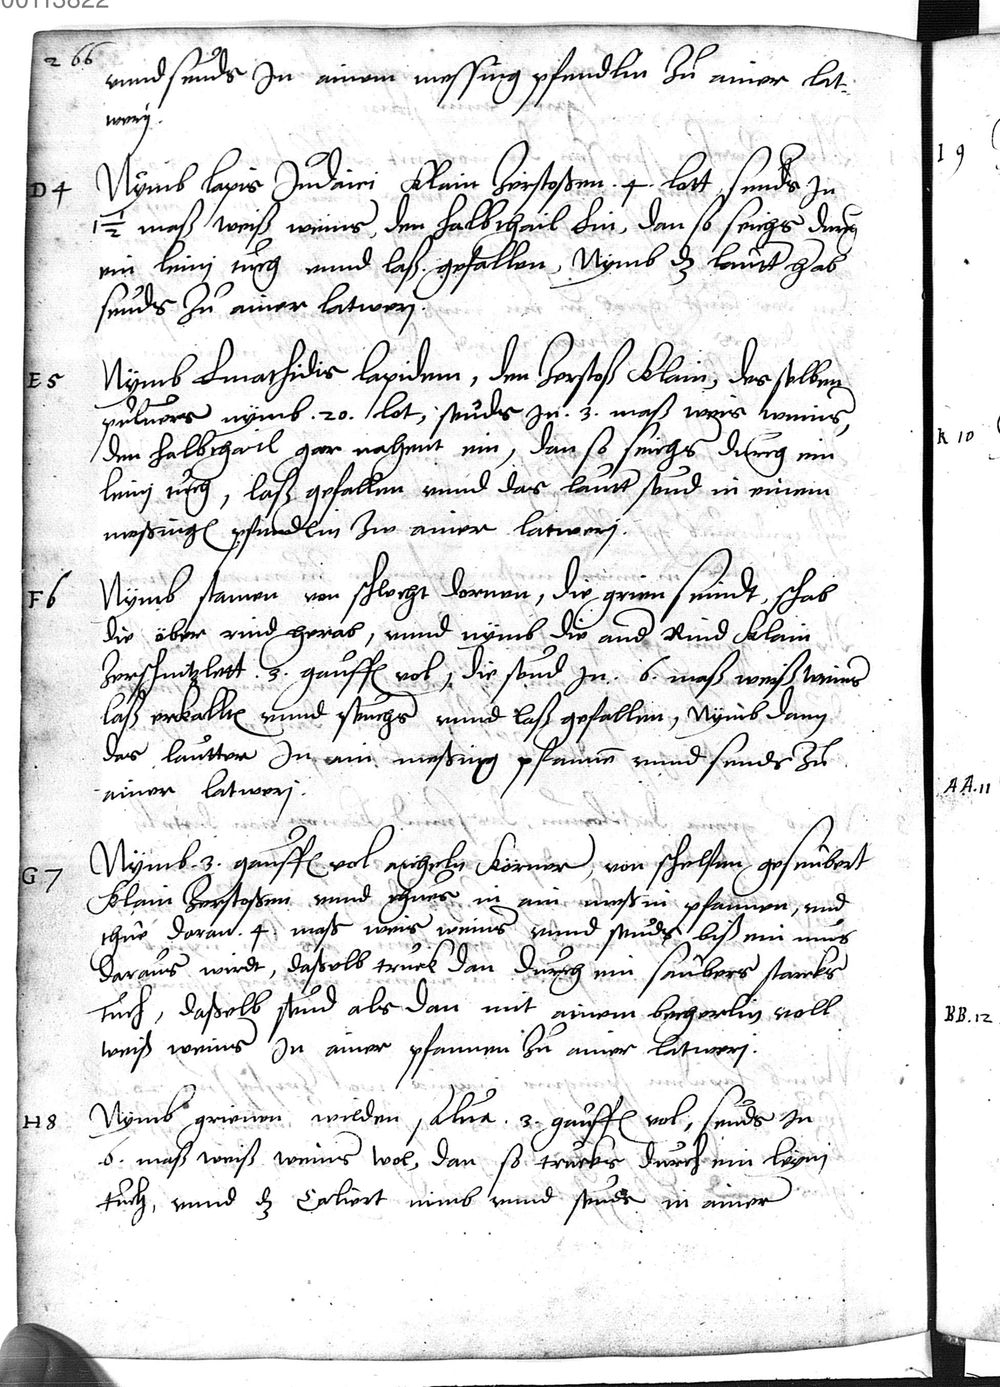 00113822
266
vnnd seuds In ainem messing pfendlin Zu ainer lat-
wery.
D 4 Nymb lapis Judaici Klain Zerstoßen .4. lott, seuds In
1 1/2 maß weiß weins, den halbthail Ein, dan so seichs durch
ein leinj tuch vnnd laß gefallen, Nymb dz lautt herab
seuds Zu ainer latwerj.
E 5 Nymb Emathidis lapidem, den Zerstoß Klain, des selben
puluers nymb .20. lot, seuds In .3. maß weis weins,
den halbthail gar nahent ein, dan so seichs durch ein
leinj tuch, laß gefallen vnnd das lautt seud in einem
messing pfendlin Zu ainer latwerj.
F 6 Nymb stamen von schlecht dornen, die grien seindt, schab
die ober rind herab, vnnd nymb die and Rind Klain
Zerschnitzlett .3. gauff vol, die seud In .6. maß weiß weins
laß erkalte vnnd seichs vnnd laß gefallen, Nymb dann
das lautter In ain messing pfanne vnnd seuds Zu
ainer latwerj.
G 7 Nymb .3. gauff vol aicheln Körner, von schelffen geseubert
Klain Zerstoßen vnnd thues in ain messin pfannen, vnd
thue daran .4. maß weis weins vnnd seuds biß ein mus
daraus wirdt, dasselb truck dan durch ein saubers starcks
tuch, dasselb seud als dan mit ainem becherlin voll
weiß weins In ainer pfannen Zu ainer latwerj.
H 8 Nymb grienen wilden Salua .3. gauff vol, seuds In
6. maß weiß weins wol, dan so trucks durch ein leyni
tuch, vnnd dz Coliert nimb vnnd seuds in ainer
I 9
K 10
AA. 11
BB. 12